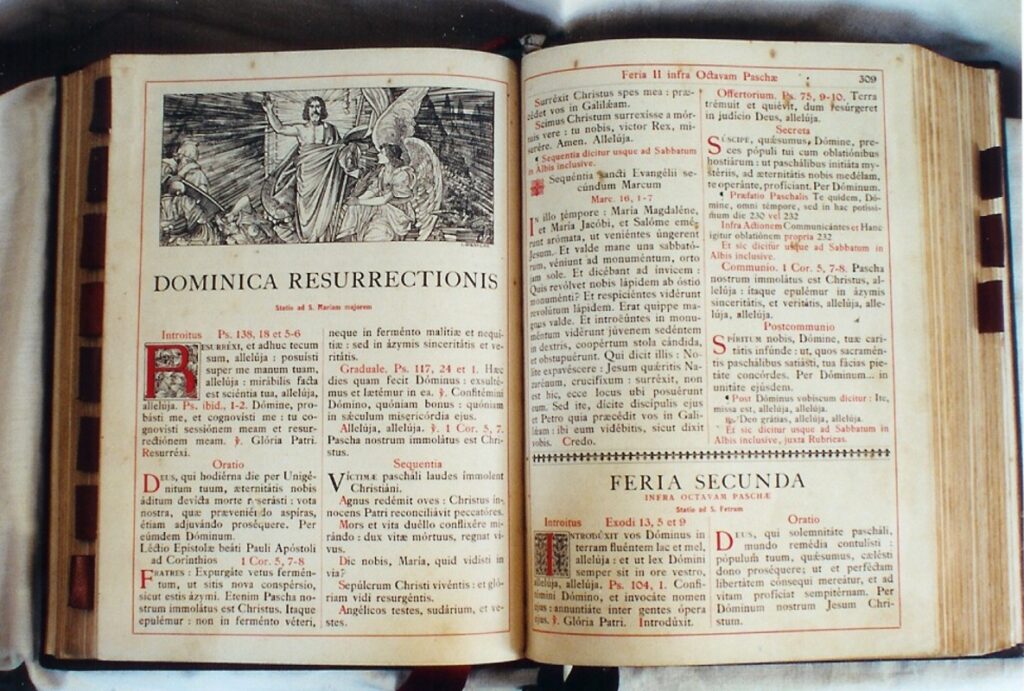 DOMINICA RESURRECTIONIS
Statio ad S. Mariam majorem
Introitus Ps. 138, 18 et 5-6
RESURRÉXI, et adhuc tecum
sum, allelúja : posuísti
super me manum tuam,
allelúja : mirábilis facta
est sciéntia tua, allelúja,
allelúja. Ps. ibid., 1-2. Dómine, pro-
básti me, et cognovísti me : tu co-
gnovísti sessiónem meam et resur-
rectiónem meam. ℣. Glória Patri.
Resurréxi.
Oratio
DEUS, qui hodiérna die per Unigé-
nitum tuum, æternitátis nobis
áditum devícta morte reserásti : vota
nostra, quæ præveniéndo aspíras,
étiam adjuvándo proséquere. Per
eúmdem Dóminum.
Léctio Epístolæ beáti Pauli Apóstoli
ad Corínthios 1 Cor. 5, 7-8
FRATRES : Expurgáte vetus fermén-
tum, ut sitis nova conspérsio,
sicut estis ázymi. Etenim Pascha no-
strum immolátus est Christus. Itaque
epulémur : non in ferménto véteri,
neque in ferménto malítiæ et nequí-
tiæ : sed in ázymis sinceritátis et ve-
ritátis.
Graduale. Ps. 117, 24 et 1. Hæc
dies quam fecit Dóminus : exsulté-
mus et lætémur in ea. ℣. Confitémini
Dómino, quóniam bonus : quóniam
in sæculum misericórdia ejus.
Allelúja, allelúja. ℣. 1 Cor. 5, 7.
Pascha nostrum immolátus est Chri-
stus.
Sequentia
VÍCTIMÆ pascháli laudes ímmolent
Christiáni.
Agnus redémit oves : Christus ín-
nocens Patri reconciliávit peccatóres.
Mors et vita duéllo conflixére mi-
rándo : dux vitæ mórtuus, regnat vi-
vus.
Dic nobis, María, quid vidísti in
via?
Sepúlcrum Christi vivéntis : et gló-
riam vidi resurgéntis.
Angélicos testes, sudárium, et ve-
stes.
Feria II infra Octavam Paschæ 309
Surréxit Christus spes mea : præ-
cédet vos in Galilǽam.
Scimus Christum surrexísse a mór-
tuis vere : tu nobis, victor Rex, mi-
serére. Amen. Allelúja.
¶ Sequentia dicitur usque ad Sabbatum
in Albis inclusive.
✠ Sequéntia sancti Evangélii se-
cúndum Marcum
Marc. 16, 1-7
IN illo témpore : María Magdaléne,
et María Jacóbi, et Salóme emé-
runt arómata, ut veniéntes úngerent
Jesum. Et valde mane una sabbató-
rum, véniunt ad monuméntum, orto
jam sole. Et dicébant ad ínvicem :
Quis revólvet nobis lápidem ab óstio
monuménti? Et respiciéntes vidérunt
revolútum lápidem. Erat quippe ma-
gnus valde. Et introëúntes in monu-
méntum vidérunt júvenem sedéntem
in dextris, coopértum stola cándida,
et obstupuérunt. Qui dicit illis : No-
líte expavéscere : Jesum quǽritis Na-
zarénum, crucifíxum : surréxit, non
est hic, ecce locus ubi posuérunt
eum. Sed ite, dícite discípulis ejus
et Petro quia præcédit vos in Gali-
lǽam : ibi eum vidébitis, sicut dixit
vobis. Credo.
Offertorium. Ps. 75, 9-10. Terra
trémuit et quiévit, dum resúrgeret
in judício Deus, allelúja.
Secreta
SÚSCIPE, quǽsumus, Dómine, pre-
ces pópuli tui cum oblatiónibus
hostiárum : ut paschálibus initiáta my-
stériis, ad æternitátis nobis medélam,
te operánte, profíciant. Per Dóminum.
¶ Præfatio Paschalis Te quidem, Dó-
mine, omni témpore, sed in hac potíssi-
mum die 230 vel 232
Infra Actionem Communicántes et Hanc
ígitur oblatiónem propria 232
Et sic dicitur usque ad Sabbatum in
Albis inclusive.
Communio. 1 Cor. 5, 7-8. Pascha
nostrum immolátus est Christus, al-
lelúja : ítaque epulémur in ázymis
sinceritátis, et veritátis, allelúja, alle-
lúja, allelúja.
Postcommunio
SPÍRITUM nobis, Dómine, tuæ cari-
tátis infúnde : ut, quos sacramén-
tis paschálibus satiásti, tua fácias pie-
táte concórdes. Per Dóminum... in
unitáte ejúsdem.
¶ Post Dóminus vobíscum dicitur : Ite,
missa est, allelúja, allelúja.
℟. Deo grátias, allelúja, allelúja.
Et sic dicitur usque ad Sabbatum in
Albis inclusive, juxta Rubricas.
FERIA SECUNDA
INFRA OCTAVAM PASCHÆ
Statio ad S. Petrum
Introitus Exodi 13, 5 et 9
INTRODÚXIT vos Dóminus in
terram fluéntem lac et mel,
allelúja : et ut lex Dómini
semper sit in ore vestro,
allelúja, allelúja. Ps. 104, 1. Confi-
témini Dómino, et invocáte nomen
ejus : annuntiáte inter gentes ópera
ejus. ℣. Glória Patri. Introdúxit.
Oratio
DEUS, qui solemnitáte pascháli,
mundo remédia contulísti :
pópulum tuum, quǽsumus, cælésti
dono proséquere; ut et perféctam
libertátem cónsequi mereátur, et ad
vitam profíciat sempitérnam. Per
Dóminum nostrum Jesum Chri-
stum.